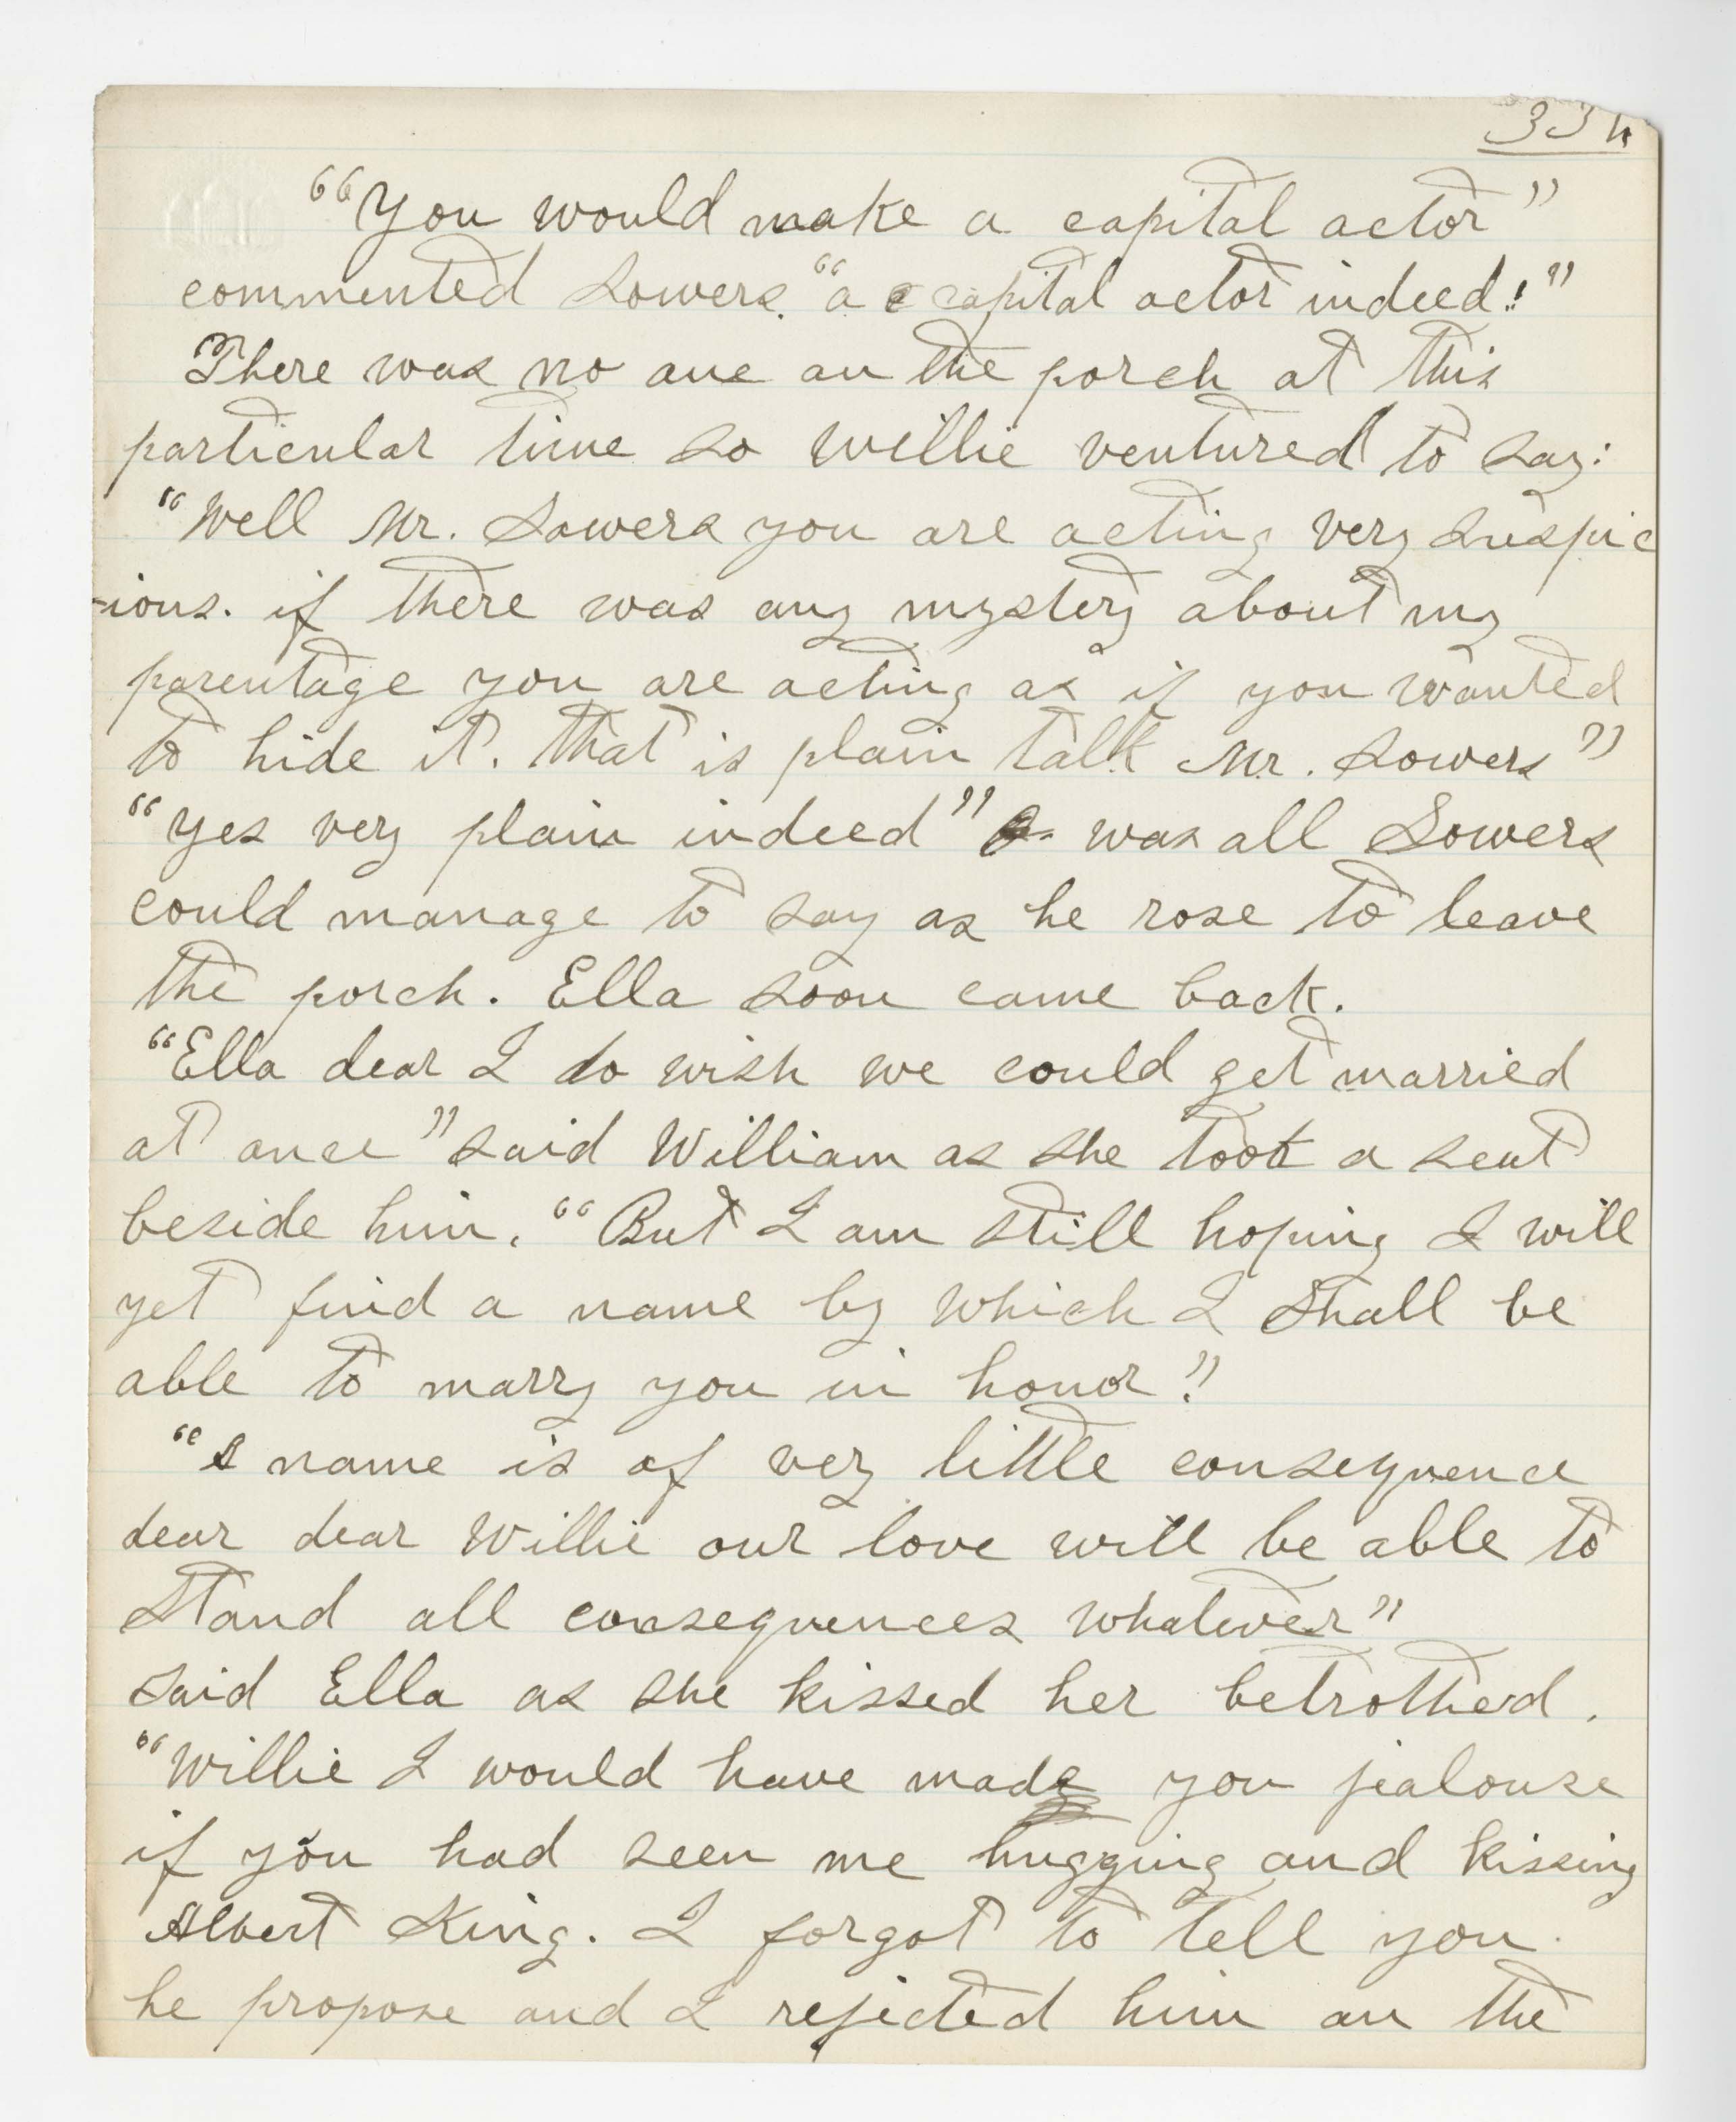 334
“You would make a capital actor”
commented Sowers. “a capital actor indeed!”
There was no one on the porch at this
particular time so Willie ventured to say:
“Well Mr. Sowers you are acting very suspic
-ious. if there was any mystery about my
parentage you are acting as if you wanted
to hide it. that is plain talk Mr. Sowers”
“Yes very plain indeed” was all Sowers
could manage to say as he rose to leave
the porch. Ella soon came back.
“Ella dear I do wish we could get married
at once” said William as she took a seat
beside him. “But I am still hoping I will
yet find a name by which I shall be
able to marry you in honor.”
“A name is of very little consequence
dear dear Willie our love will be able to
stand all consequences whatever”
said Ella as she kissed her betrotherd.
“Willie I would have made you jealouse
if you had seen me hugging and kissing
Albert King. I forgot to tell you.
he propose and I rejected him on the